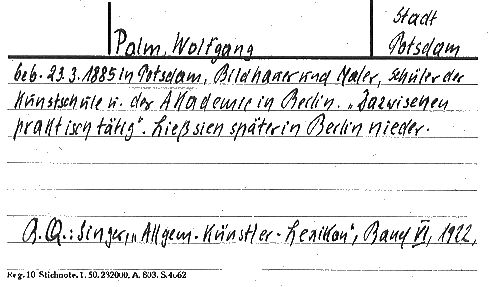 Stadt
Palm, Wolfgang Potsdam
geb. 23.3.1885 in Potsdam, Bildhauer und Maler, Schüler der
Kunstschule u. der Akademie in Berlin. „Dazwischen
praktisch tätig“. Ließ sich später in Berlin nieder.
A.Q.: Singer, „Allgem. Künstler-Lexikon“, Band VI, 1922,
Reg. 10 Stichnote. 1. 50. 232000. A. 803. S. 4662